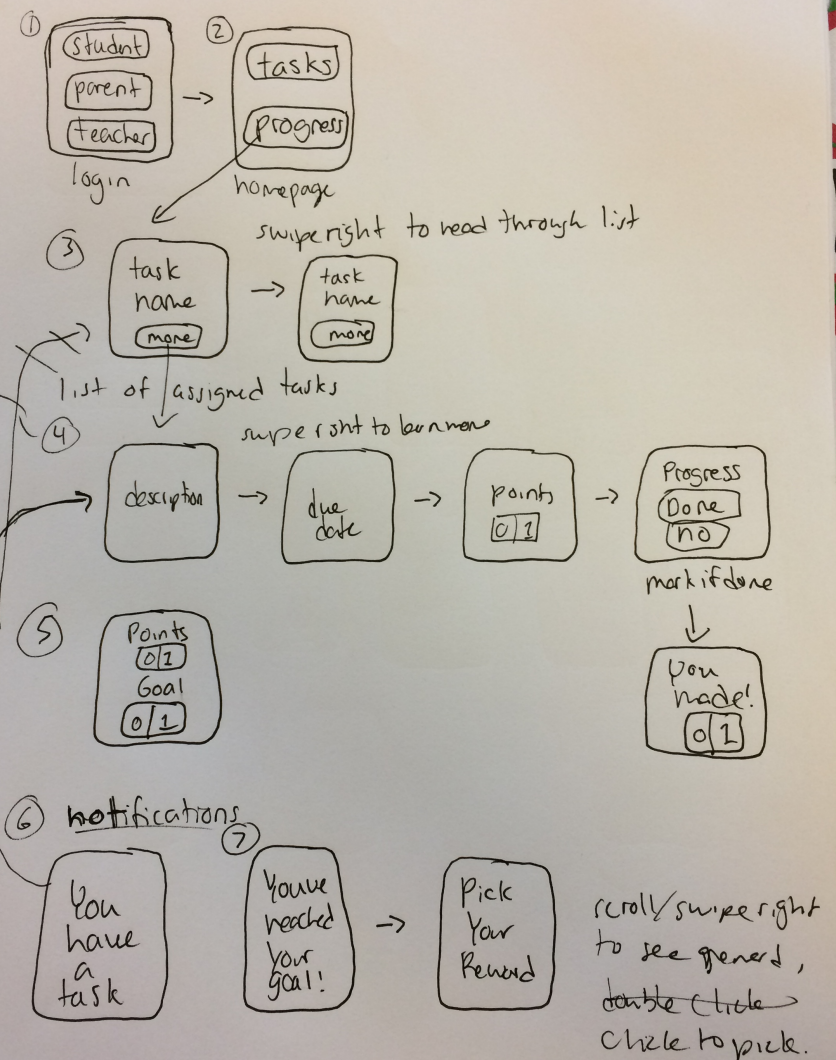 1
student
parent
teacher
login
2
tasks
progress
homepage
3
swipe right to read through list
task
name
more
task
name
more
list of assigned tasks
4
swipe right to learn more
description
due
date
points
0 1
Progress
Done
no
mark if done
You
made!
0 1
5
Points
0 1
Goal
0 1
6 notifications
You
have
a
task
7
Youve
reached
your
goal!
Pick
Your
Reward
scroll/swipe right
to see
double click
Click to pick.